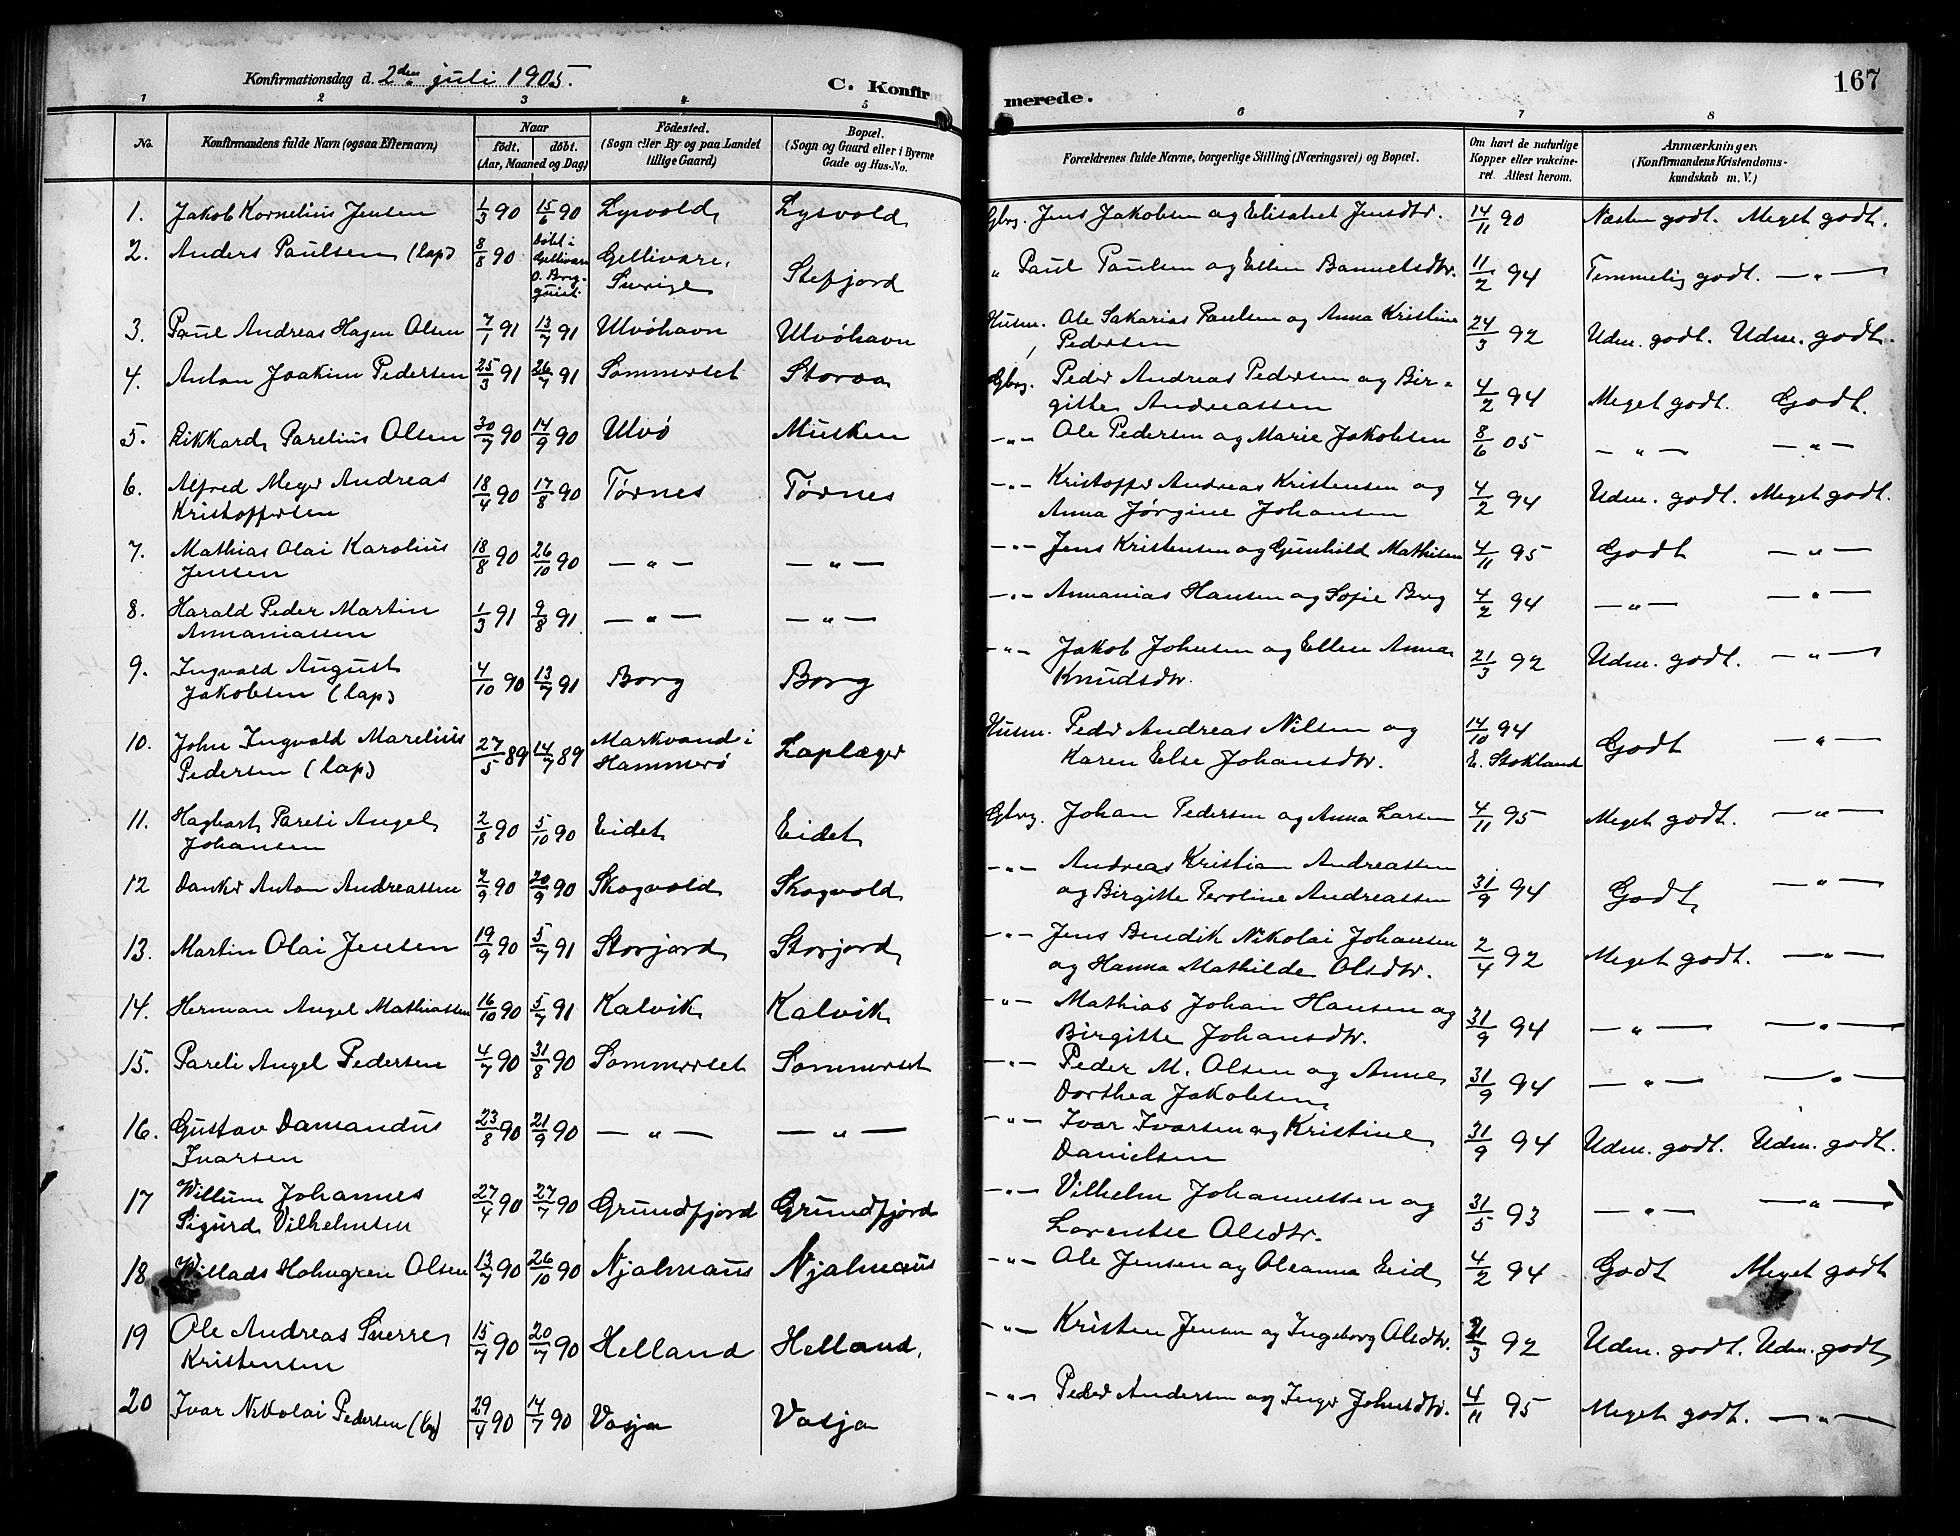 Konfirmationsdag d. 2den juli 1905.
C. Konfirmerede.
167
1 2 3 4 5 6 7 8
No.
Konfirmandens fulde Navn (ogsaa Efternavn)
Naar
födt. döbt.
(Aar, Maaned og Dag)
Födested.
(Sogn eller By og paa Landet
tillige Gaard)
Bopæl.
(Sogn og Gaard eller i Byerne
Gade og Hus-No.
Forældrenes fulde Navne, borgerlige Stilling (Næringsvei) og Bopæl.
Om havt de naturlige
Kopper eller vakcine-
ret. Attest herom.
Anmærkninger.
(Konfirmandens Kristendoms-
kundskab m. V.)
1. Jakob Kornelius Jensen 1/3 90 15/6 90 Lysvold Lysvold Gbrg. Jens Jakobsen og Elisabet Jensdtr. 14/11 90 Næsten godt. Meget godt.
2. Anders Paulsen (lap) 8/8 90 Döbt i Gellivare Gellivare, Sverige Stefjord " Paul Paulsen og Ellen 11/2 94 Temmelig godt. — " —
3. Paul Andreas Hagen Olsen 7/1 91 13/7 91 Ulvöhavn Ulvöhavn Husm. Ole Sakarias Paulsen og Anna Kristine
Pedersen 24/3 92 Udm. godt. Udm. godt.
4. Anton Joakim Pedersen 25/3 91 26/7 91 Sommerset Storaa Gbrg. Peder Andreas Pedersen og Bir-
gitte Andreassen 4/2 94 Meget godt. Godt.
5. Rikkard Parelius Olsen 30/7 90 14/9 90 Ulvö Musken — " — Ole Pedersen og Marie Jakobsen 8/6 05 — " — — " —
6. Alfred Meyer Andreas
Kristoffersen 18/4 90 17/8 90 Törnes Törnes — " — Kristoffer Andreas Kristensen og
Anna Jørgine Johansen 4/2 94 Udm. godt. Meget godt.
7. Mathias Olai Karolius
Jensen 18/8 90 26/10 90 — " — — " — — " — Jens Kristensen og Gunhild Mathisen 4/11 95 Godt — " —
8. Harald Peder Martin
Annaniassen 1/3 91 9/8 91 — " — — " — — " — Annanias Hansen og Sofie Berg 4/2 94 — " — — " —
9. Ingvald August
Jakobsen (lap) 4/10 90 13/7 91 Borg Borg — " — Jakob Johnsen og Ellen Anna
Knudsdtr. 21/3 92 Udm. godt. — " —
10. John Ingvald Marelius
Pedersen (lap) 27/5 89 14/7 89 Markvand i
Hammerö Laplæger Husm. Peder Andreas Nilsen og
Karen Else Johansdtr. 14/10 94
E. Stokland Godt — " —
11. Hagbart Pareli Angel
Johansen 2/8 90 5/10 90 Eidet Eidet Gbrg. Johan Pedersen og Anna Larsen 4/11 95 Meget godt. — " —
12 Danker Anton Andreassen 2/9 90 20/9 90 Skogvold Skogvold — " — Andreas Kristian Andreassen
og Birgitte Peroline Andreassen 31/9 94 Godt — " —
13. Martin Olai Jensen 19/9 90 5/7 91 Storjord Storjord — " — Jens Bendik Nikolai Johansen
og Hanna Mathilde Olsdtr. 2/4 92 Meget godt. — " —
14. Herman Angel Mathiassen 16/10 90 5/7 91 Kalvik Kalvik — " — Mathias Johan Hansen og
Birgitte Johansdtr. 31/9 94 — " — — " —
15. Pareli Angel Pedersen 4/7 90 31/8 90 Sommerset Sommerset — " — Peder M. Olsen og Anne
Dorthea Jakobsen 31/9 94 — " — — " —
16. Gustav Damandus
Ivarsen 23/8 90 21/9 90 — " — — " — — " — Ivar Ivarsen og Kristine
Danielsen 31/9 94 Udm. godt. Udm. godt.
17 Willum Johannes
Sigurd Vilhelmsen 27/4 90 27/7 90 Grundfjord Grundfjord — " — Vilhelm Johannessen og
Lorentse Olsdtr. 31/5 93 — " — — " —
18 Willads Holmgren Olsen 13/7 90 26/10 90 Njalmaus Njalmaus — " — Ole Jensen og Oleanna Eid 4/2 94 Godt Meget godt
19 Ole Andreas Sverre
Kristensen 15/7 90 20/7 90 Helland Helland. — " — Kristen Jensen og Ingeborg Olsdtr. 21/3 92 Udm. godt. Udm. godt
20 Ivar Nikolai Pedersen 29/4 90 14/7 90 Vasja Vasja — " — Peder Andersen og Inger Johnsdtr. 4/11 95 Meget godt. — " —